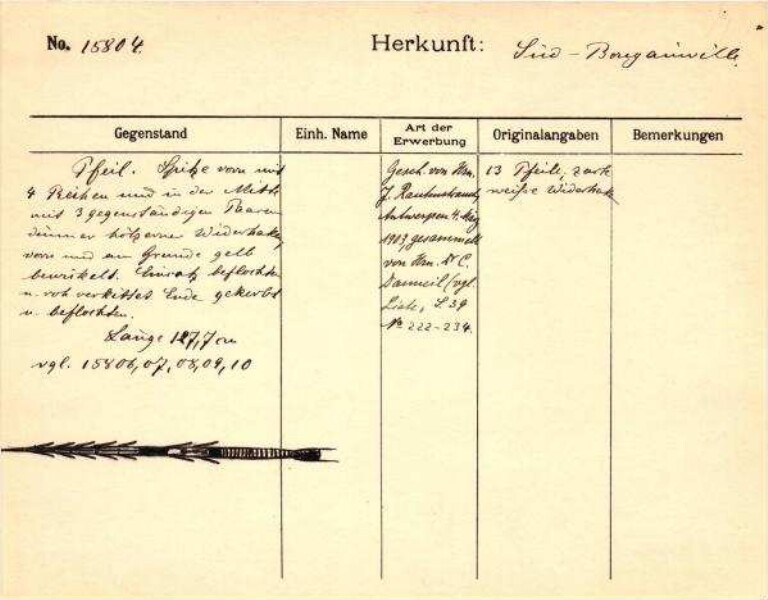 No. 15804.
Herkunft: Süd-Bougainville.
Gegenstand
Einh. Name
Art der Erwerbung
Originalangaben
Bemerkungen
Pfeil. Spitze vorn mit
4 Reihen und in der Mitte
mit 3 gegenständigen Paaren
dünner hölzerner Widerhaken,
vorn und am Grunde gelb
bewickelt. Einsatz beflochten
u. rot verkittet Ende gekerbt
u. beflochten.
Länge 127,7 cm
vgl. 15806,07,08,09,10
Gesch. von Hrn.
J. Rautenstrauch,
Antwerpen 4. May
1913, gesammelt
von Hrn. Dr C.
Danneil (vgl.
Liste, S. 39
No 222-234.
13 Pfeile, zark
weisse Widerhaken